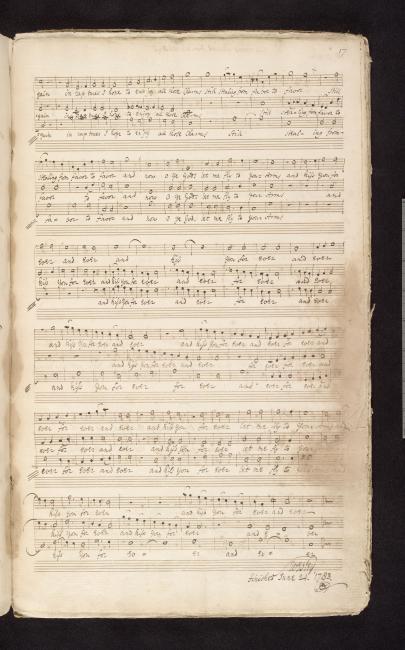 17
gain in raptures I hope to enjoy all those Charms Still Stealing from favor to favor Still
again in raptures I hope to enjoy all those Charms Still Stealing from favor to
again in raptures I hope to enjoy all those Charms Still Steal - ing from
Stealing from favor to favor and now O ye Gods let me fly to your Arms and kiss you for
favor to favor and now O ye Gods let me fly to your Arms and
fa - vor to favor and now O ye Gods let me fly to your Arms
ever and ever and kiss you for ever and ever
kiss you for ever and kiss you for ever and ever for ever and ever
and kiss you for ever and ever for ever and ever
and kiss you for ever and ever and kiss you for ever and ever for ever and
and kiss you for ever and ever for ever for ever and
and kiss you for ever for ever and ever for ever and
ever for ever and ever and kiss you for ever let me fly to your
ever for ever and ever and kiss you for ever let me fly to
ever for ever and ever and kiss you for ever let me fly to
kiss you for ever and kiss you for ever and ever
kiss you for ever and kiss you for ever and ver
kiss you for e - er and e - er
Finishet June 24. 1782